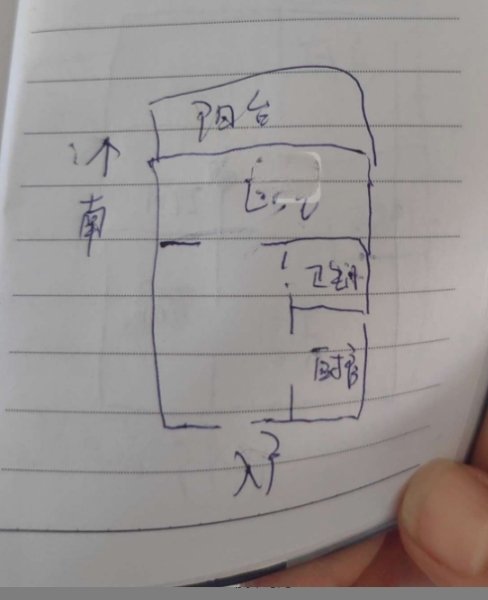 阳台
南
卫生间
厨房
入户